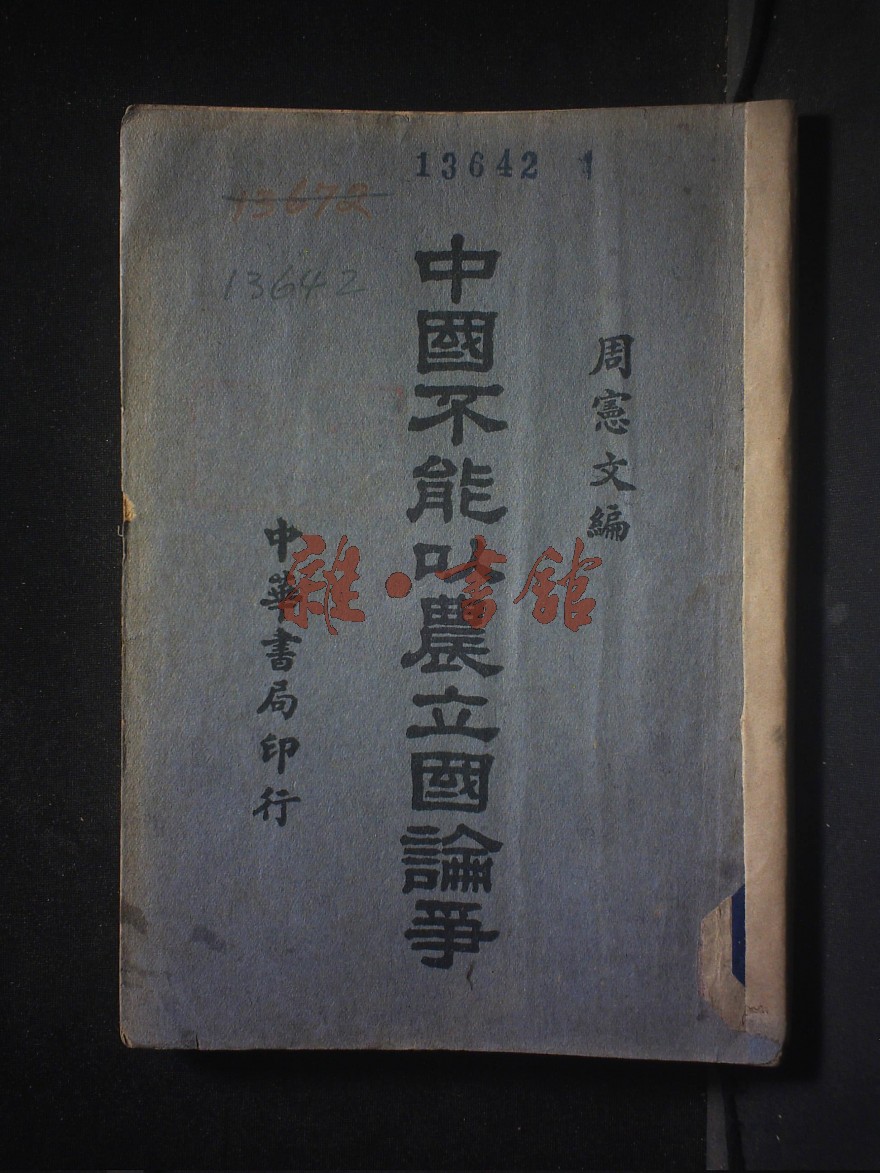 13642 1
13672
13642
周憲文編
中國不能以農立國論爭
中華書局印行
雜·書館